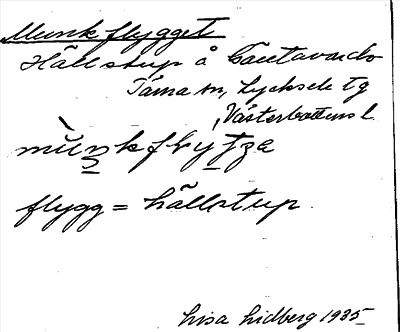 Munkflygget
Hällstup å Gautavardo
Tärna sn, Lycksele tg
Västerbottens l.
mùnkflytze
flygg = hällstup.
Lisa Lidberg 1935